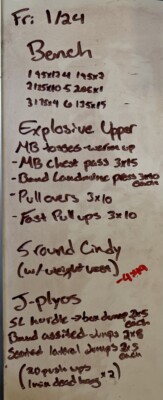 Fri 1/24
Bench
1 95x12 4 195x2
2 125x10 5 205x1
3 175x4 6 135x15
Explosive Upper
MB tosses-warm up
- MB Chest pass 3x15
- Band Landmine press 3x10 each
- Pullovers 3x10
- Fast Pullups 3x10
5 round Cindy
(w/ weight vest)
J-plyos
SL hurdle → box jump 2x5 each
Band assisted jumps 2x8
Seated lateral jumps 2x5 each
(20 push ups
1 min dead hang x2)